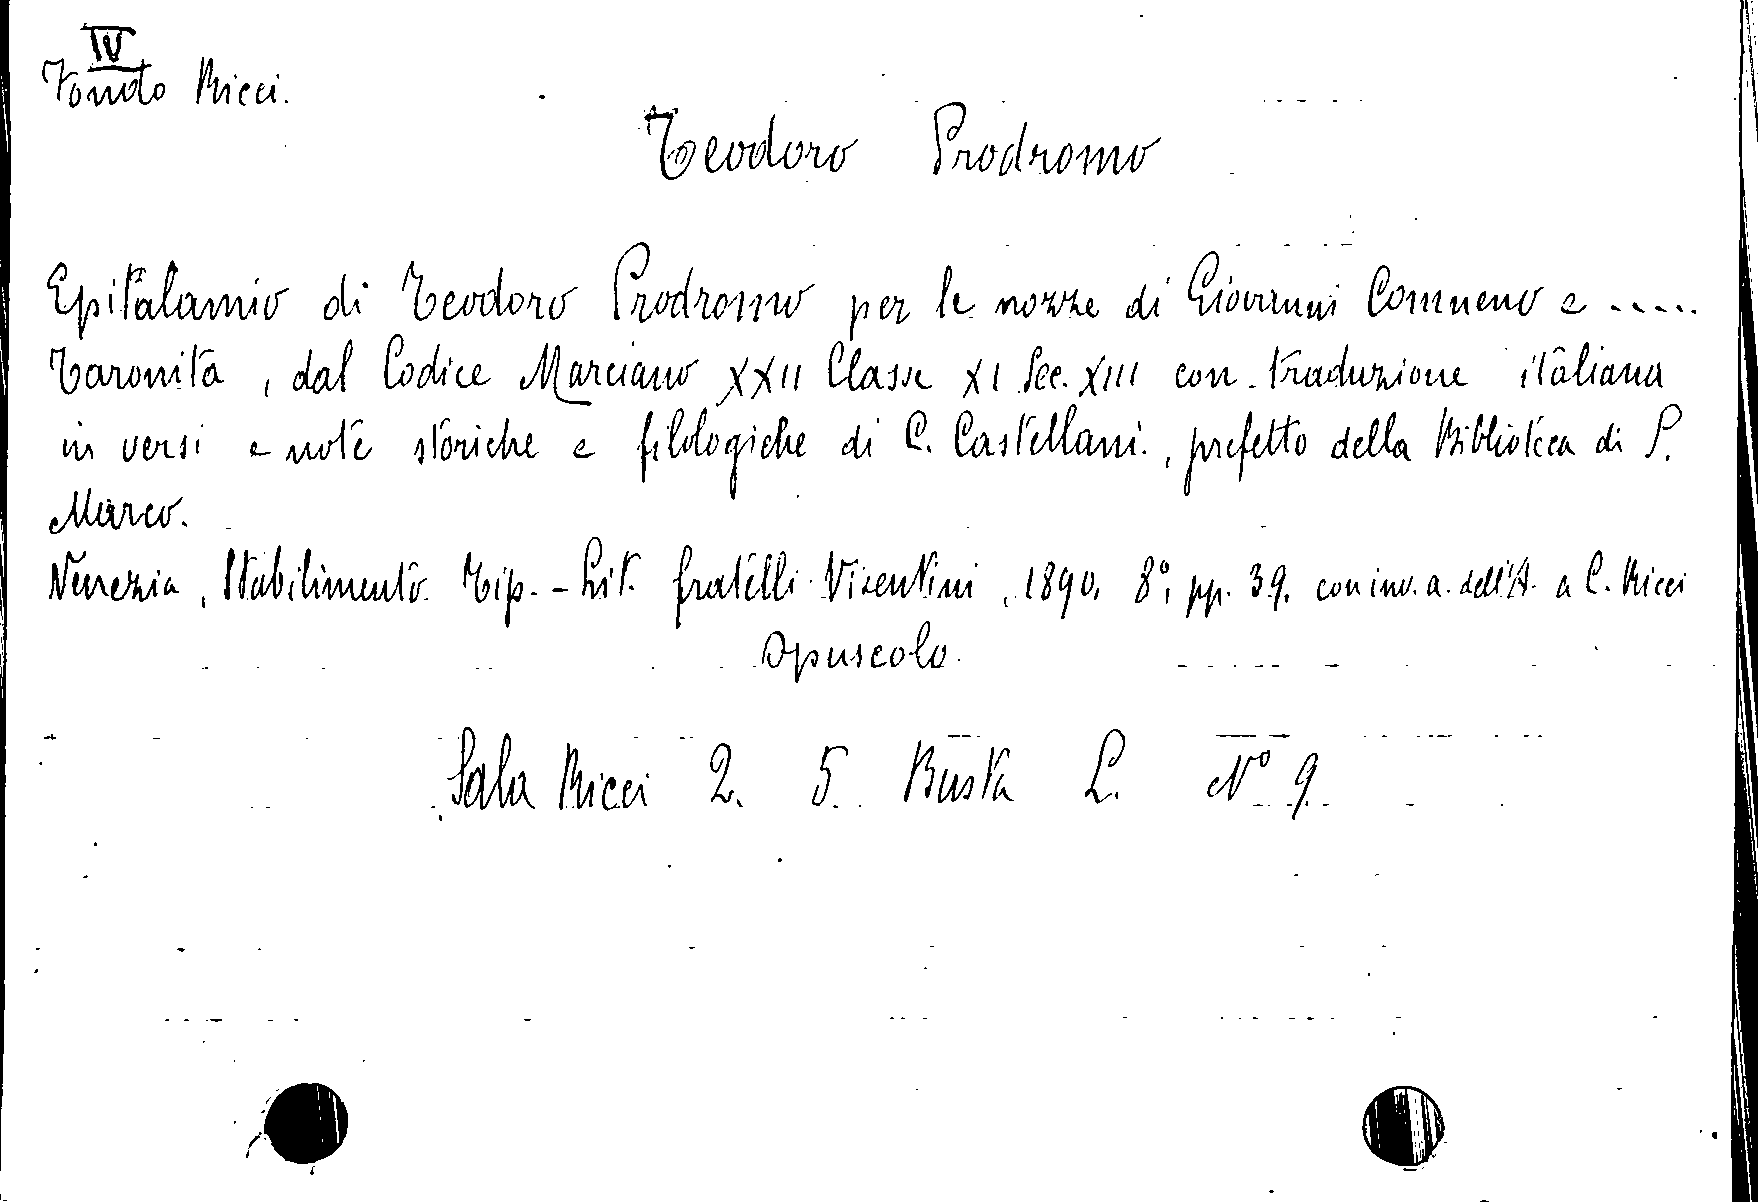 IV
Fondo Ricci.
Teodoro Prodromo
Epitalamio di Teodoro Prodromo per le nozze di Giovanni Comneno e .....
Taronita, dal Codice Marciano XXII Classe XI Sec. XIII con traduzione italiana
in versi e note storiche e filologiche di C. Castellani, prefetto della Biblioteca di S.
Marco.
Venezia, Stabilimento Tip.-Lit. fratelli Visentini, 1890. 8°, pp. 39. con inv. a. dell'A. a C. Ricci
Opuscolo.
Sala Ricci 2. 5. Busta L. N° 9.